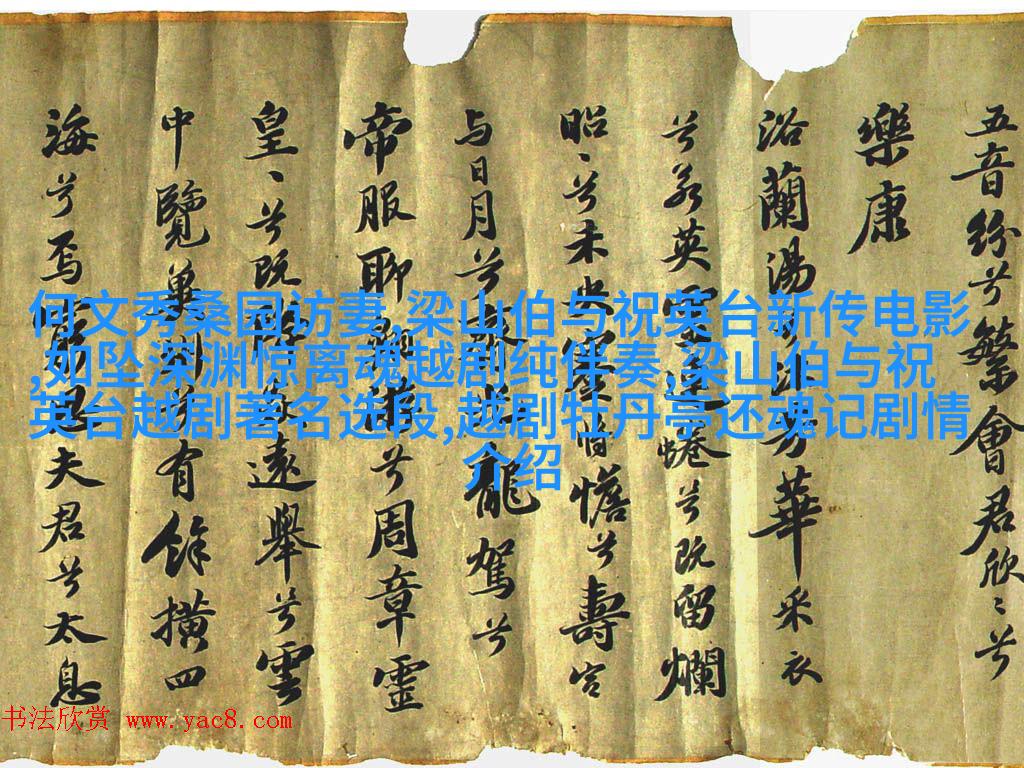 五音紛兮繁會君欣〻兮
樂康
浴蘭湯兮沐芳華采衣
兮若英靈連蜷兮既留爛
昭〻兮未央蹇憺兮壽宮
与日月兮齊光龍駕兮
帝服聊翱遊兮周章靈
皇〻兮既降遠舉兮雲
中覽冀州兮有餘橫四
海兮焉窮思夫君兮太息
何文秀桑园访妻,梁山伯与祝英台新传电影
,如坠深渊惊离魂越剧纯伴奏,梁山伯与祝
英台越剧著名选段,越剧牡丹亭还魂记剧情
介绍
书法欣赏 www.yac8.com